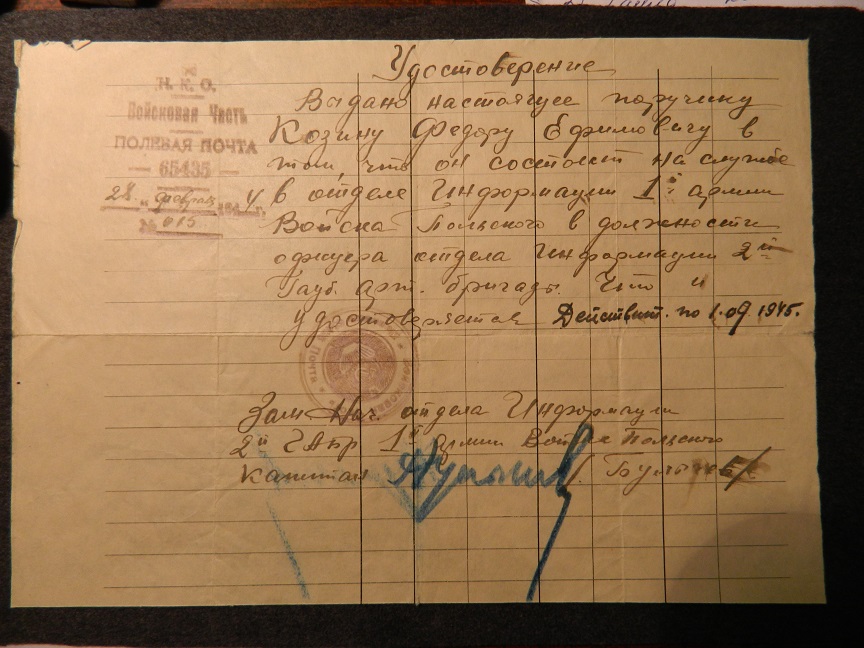 Удостоверение
Н. К. О.
Войсковая Часть
ПОЛЕВАЯ ПОЧТА
— 65435 —
28 „ февраль 194 4 г.
№ 015
Выдано настоящее поручику
Козину Федору Ефимовичу в
том, что он состоит на службе
в отделе Информации 1й армии
Войска Польского в должности
офицера отдела Информации 2й
Гауб. арт. бригады. Что и
удостоверяется Действит. по 1.09.1945.
Зам Нач. отдела Информации
2й ГАбр 1й армии Войска Польского
Капитан